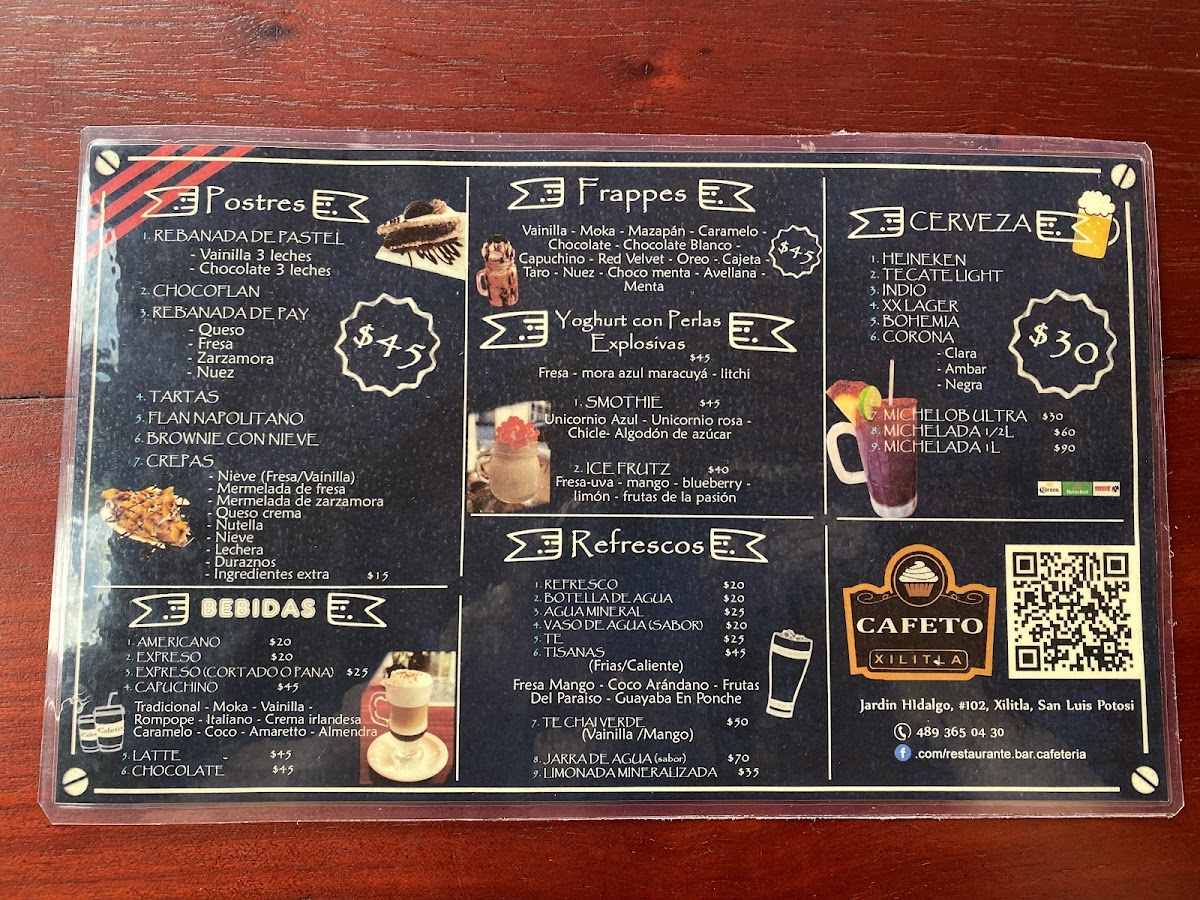 Postres
1. REBANADA DE PASTEL
- Vainilla 3 leches
- Chocolate 3 leches
2. CHOCOFLAN
3. REBANADA DE PAY
- Queso
- Fresa
- Zarzamora
- Nuez
$45
4. TARTAS
5. FLAN NAPOLITANO
6. BROWNIE CON NIEVE
7. CREPAS
- Nieve (Fresa/Vainilla)
- Mermelada de fresa
- Mermelada de zarzamora
- Queso crema
- Nutella
- Nieve
- Lechera
- Duraznos
- Ingredientes extra $15
BEBIDAS
1. AMERICANO $20
2. EXPRESO $20
3. EXPRESO (CORTADO O PANA) $25
4. CAPUCHINO $45
Tradicional - Moka - Vainilla -
Rompope - Italiano - Crema irlandesa
Caramelo - Coco - Amaretto - Almendra
5. LATTE - $45
6. CHOCOLATE $45
Frappes
Vainilla - Moka - Mazapán - Caramelo -
Chocolate - Chocolate Blanco -
Capuchino - Red Velvet - Oreo - Cajeta -
Taro - Nuez - Choco menta - Avellana -
Menta
$45
Yoghurt con Perlas
Explosivas
$45
Fresa - mora azul maracuyá - litchi
1. SMOTHIE $45
Unicornio Azul - Unicornio rosa -
Chicle- Algodón de azúcar
2. ICE FRUTZ $40
Fresa-uva - mango - blueberry -
limón - frutas de la pasión
Refrescos
1. REFRESCO $20
2. BOTELLA DE AGUA $20
3. AGUA MINERAL $25
4. VASO DE AGUA (SABOR) $20
5. TE $25
6. TISANAS $45
(Frias/Caliente)
Fresa Mango - Coco Arándano - Frutas
Del Paraiso - Guayaba En Ponche
7. TE CHAI VERDE $50
(Vainilla /Mango)
8. JARRA DE AGUA (sabor) $70
9. LIMONADA MINERALIZADA $35
CERVEZA
1. HEINEKEN
2. TECATE LIGHT
3. INDIO
4. XX LAGER
5. BOHEMIA
6. CORONA
- Clara
- Ambar
- Negra
$30
7. MICHELOB ULTRA $30
8. MICHELADA 1/2L $60
9. MICHELADA 1L $90
Corona
Heineken
CAFETO
XILITLA
Jardin HIdalgo, #102, Xilitla, San Luis Potosi
489 365 04 30
f .com/restaurante.bar.cafeteria